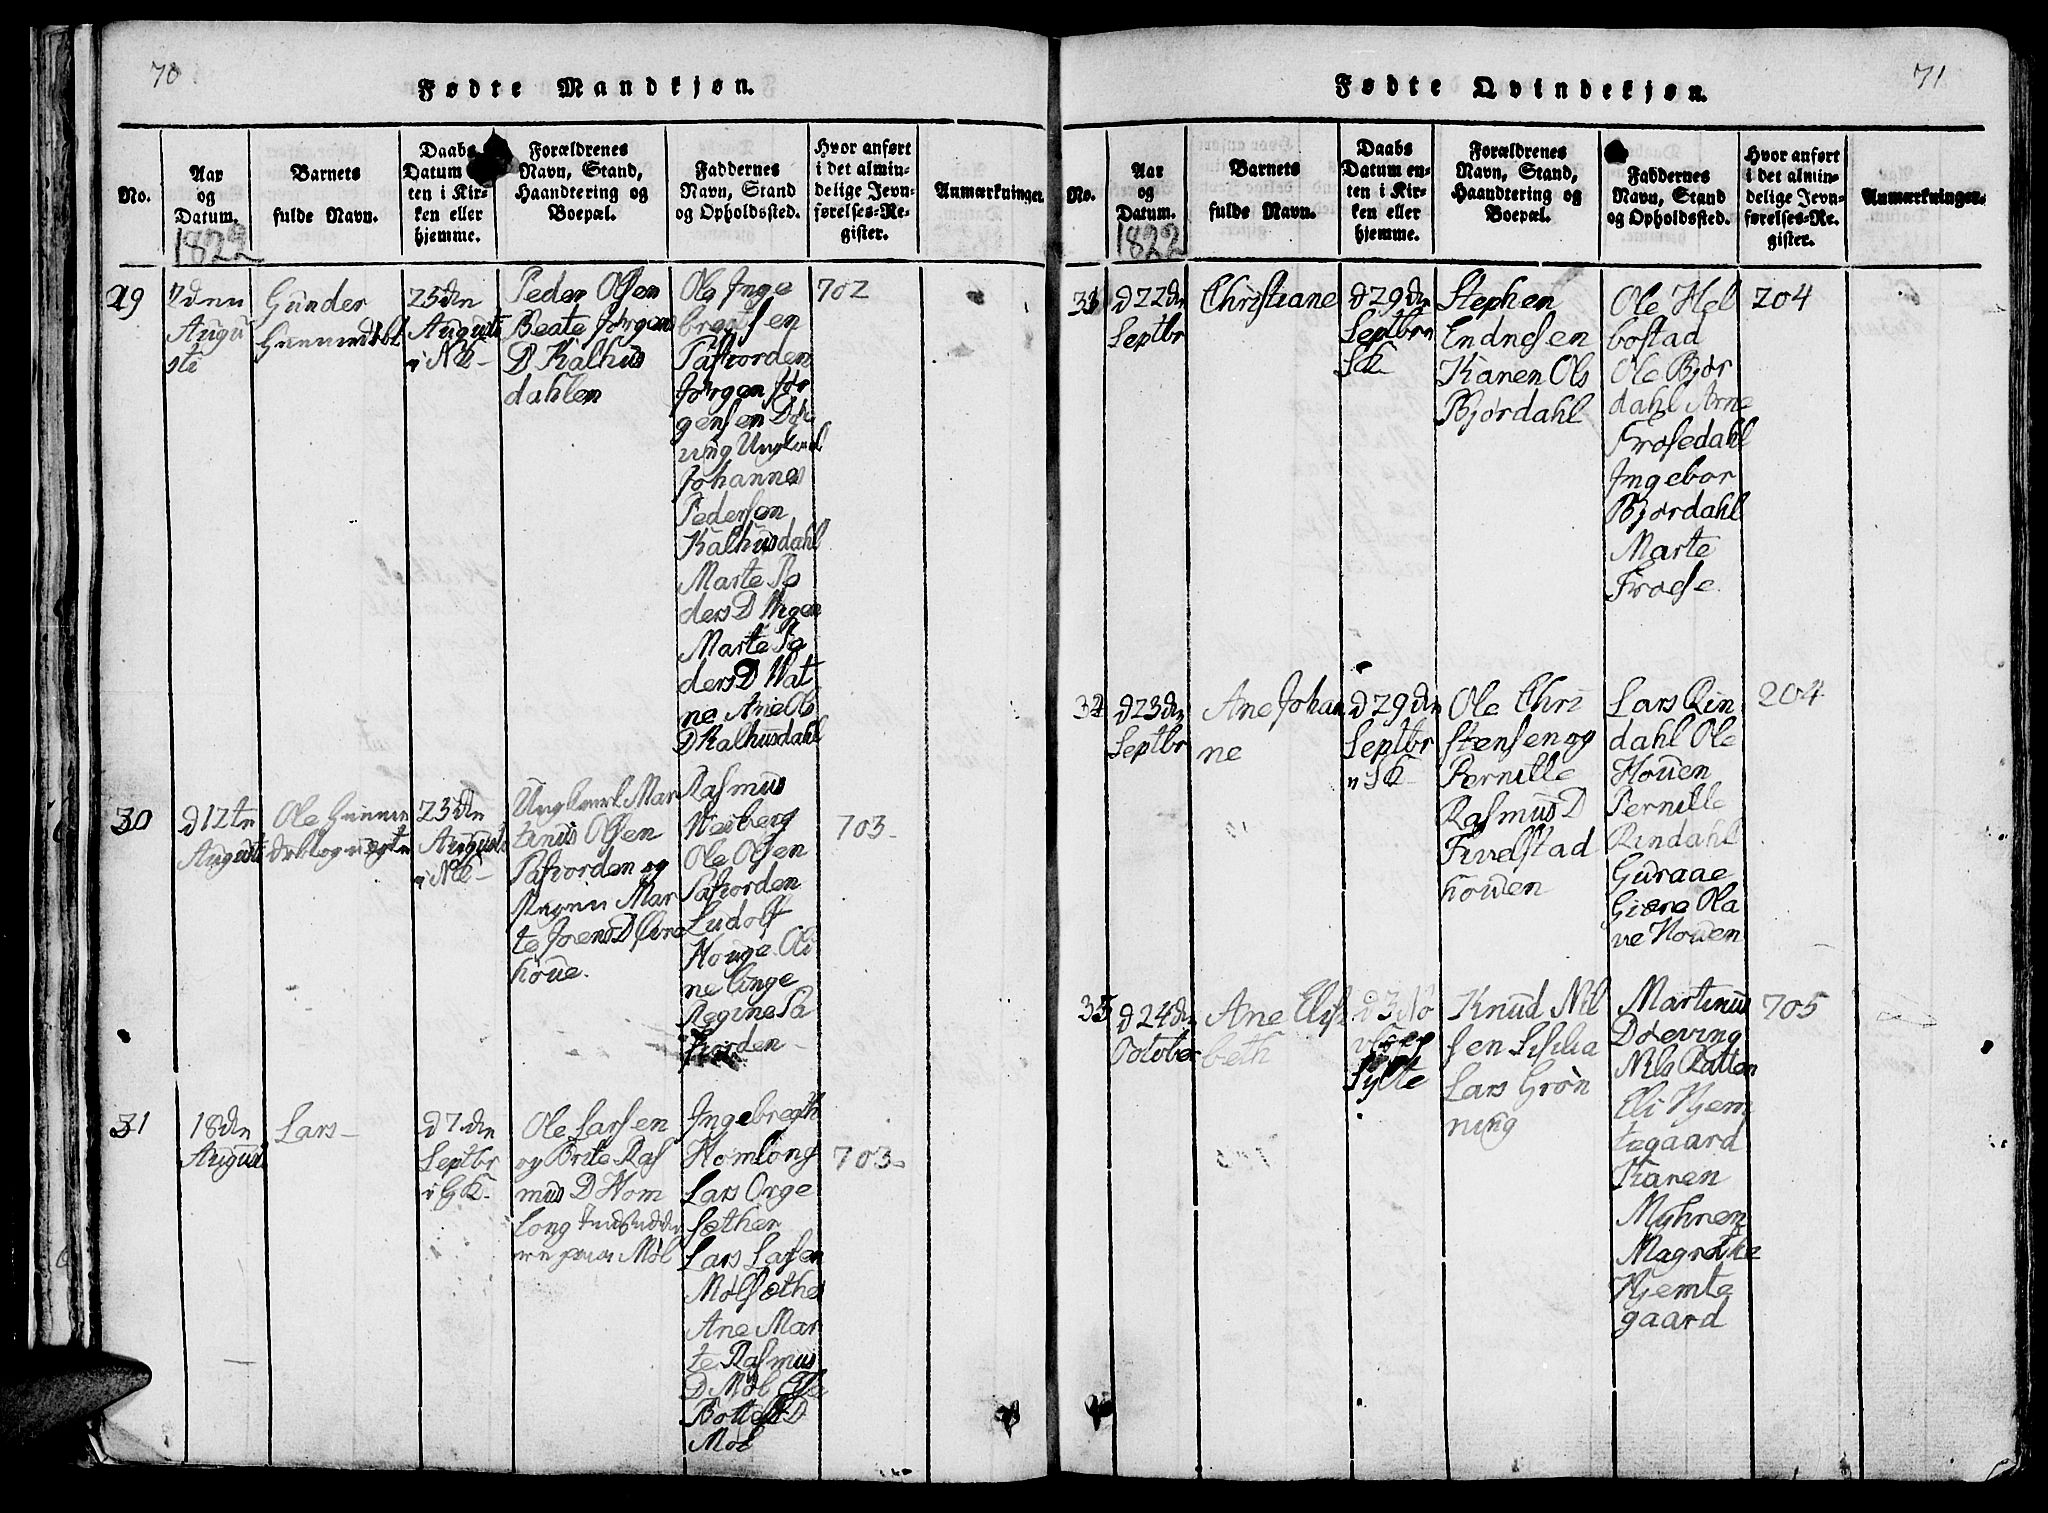 70
Fødte Mandkjøn.
No.
Aar og Datum.
Barnets fulde Navn.
Daabs Datum
ten i Kir-
ken eller
hjemme.
Forældrenes
Navn, Stand,
Haandtering og
Boepæl.
Faddernes
Navn, Stand
og Opholdssted.
Hvor anført
i det almin-
delige Jevn-
førelses-Re-
gister.
Anmærkninger.
1822
29
7den
Augu
sti
Gunder
25den
Augusti
i NK
Peder Olsen
Beate Jørgens
D Kalhus
dahlen
Ole Inge
brigtsen
Jørgen Jør
gensen
Ungkarl
Johannes
Pedersen
Kalhusdahl
Marte Pe
ders D
Marte Pe
ders D Wat
ne Ane Ols
D Kalhusdahl
702
30
d12te
Augusti
Ole
23den
Augusti
i NK
Ungkarl Mar
tinus Olsen
og
Pigen Mar
te Joens D Øvre
houe.
Rasmus
Nesberg
Ole Olsen
Ludolf
Houge Oli
ne
Regine
703
31
18den
August
Lars
d7den
Septbr
i GK
Ole Larsen
og Brite Ras
mus D Hom
long
Møl
Ingebregth
Homlong
Lars Orge
sæther
Lars Larsen
Mølsæther
Ane Mar
te Rasmus
D Møl
Møl
703
71
Fødte Qvindekjøn.
No.
Aar og Datum.
Barnets fulde Navn.
Daabs
Datum en-
ten i Kir-
ken eller
hjemme.
Forældrenes
Navn, Stand,
Haandtering og
Boepæl.
Faddernes
Navn, Stand
og Opholdssted.
Hvor anført
i det almin-
delige Jevn-
førelses-Re-
gister.
Anmærkninger.
1822
d22den
Septbr
Christiane
d29de
Septbr
SK
Stephen
Endresen
Karen Ols
Bjørdahl
Ole Hel
bostad
Ole Bjør
dahl Arne
Frosedahl
Ingebor
Bjørdahl
Marte
204
d23de
Septbr
Ane Johan
ne
d29de
Septbr
i SK
Ole Chri
stensen og
Pernille
Rasmus D
Fivelstad
houen
Lars Rin
dahl Ole
Houen
Pernille
Rindahl
Giære Ola
ve Houen
204
35
d24de
October
Ane Elisa
beth
d3 No
Sylte
Knud Nil
sen
Lars Grøn
ning
Martinus
Døeving
Nils
Eli Hjem
tegaard
Karen
Myhren
Magrethe
Hjemte
gaard
705